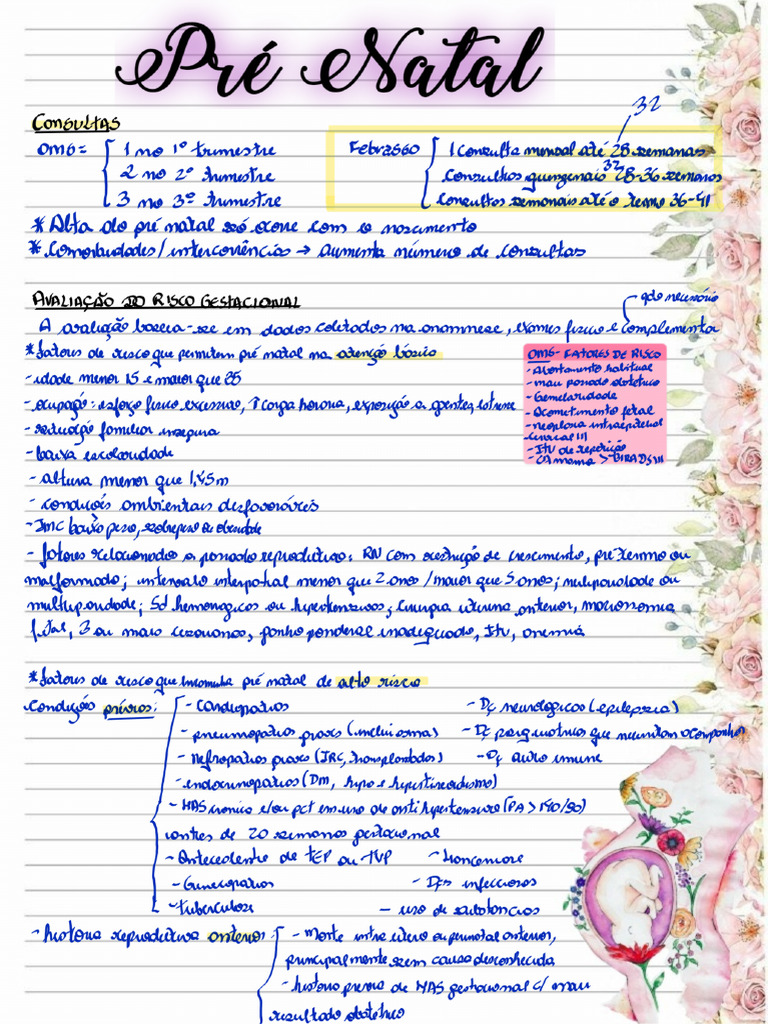 Pré Natal
32
CONSULTAS
OMS= 1 no 1º trimestre
2 no 2º trimestre
3 no 3º trimestre
Febrasgo 1 consulta mensal até 28 semanas
32
consultas quinzenais 28-36 semanas
consultas semanais até o termo 36-41
* Alta do pré natal só ocorre com o nascimento
* Comorbidades/intercorrências → aumenta número de consultas
AVALIAÇÃO DO RISCO GESTACIONAL
qdo necessário
A avaliação baseia-se em dados coletados na anamnese, exames físico e complementar
* fatores de risco que permitem pré natal na atenção básica
- idade menor 15 e maior que 35
- ocupação: esforço físico excessivo, ↑ carga horária, exposição a agentes, estresse
- situação familiar insegura
- baixa escolaridade
- altura menor que 1,45m
- condições ambientais desfavoráveis
- IMC baixo peso, sobrepeso ou obesidade
OMS- FATORES DE RISCO
- Abortamento habitual
- mau passado obstétrico
- Gemelaridade
- Acometimento fetal
- neoplasia intraepitelial
cervical III
- ITU de repetição
- CA mama > BIRADS III
- fatores relacionados a passado reprodutivo: RN com restrição de crescimento, pré-termo ou
malformado; intervalo interpartal menor que 2 anos/maior que 5 anos; nuliparidade ou
multiparidade; Sd hemorrágicos ou hipertensivos; cirurgia uterina anterior, macrossomia
fetal, 3 ou mais cesarianas, ganho ponderal inadequado, ITU, anemia
* fatores de risco que encaminha pré natal de alto risco
Condições prévias:
- Cardiopatias
- pneumopatias graves (inclui asma)
- Nefropatias graves (IRC, transplantados)
- endocrinopatias (DM, hipo e hipertireoidismo)
- HAS crônica e/ou pct em uso de anti hipertensivo (PA > 140/90)
antes de 20 semanas gestacional
- Antecedente de TEP ou TVP
- Ginecopatias
- tuberculose
- Dç neurológicas (epilepsia)
- Dç psiquiátricas que necessitam acompanhar
- Dç auto imune
- hanseníase
- Dçs infecciosas
- uso de substâncias
- história reprodutiva anterior:
- Morte intra útero ou perinatal anterior,
principalmente sem causa desconhecida
- história prévia de HAS gestacional c/ mau
resultado obstétrico